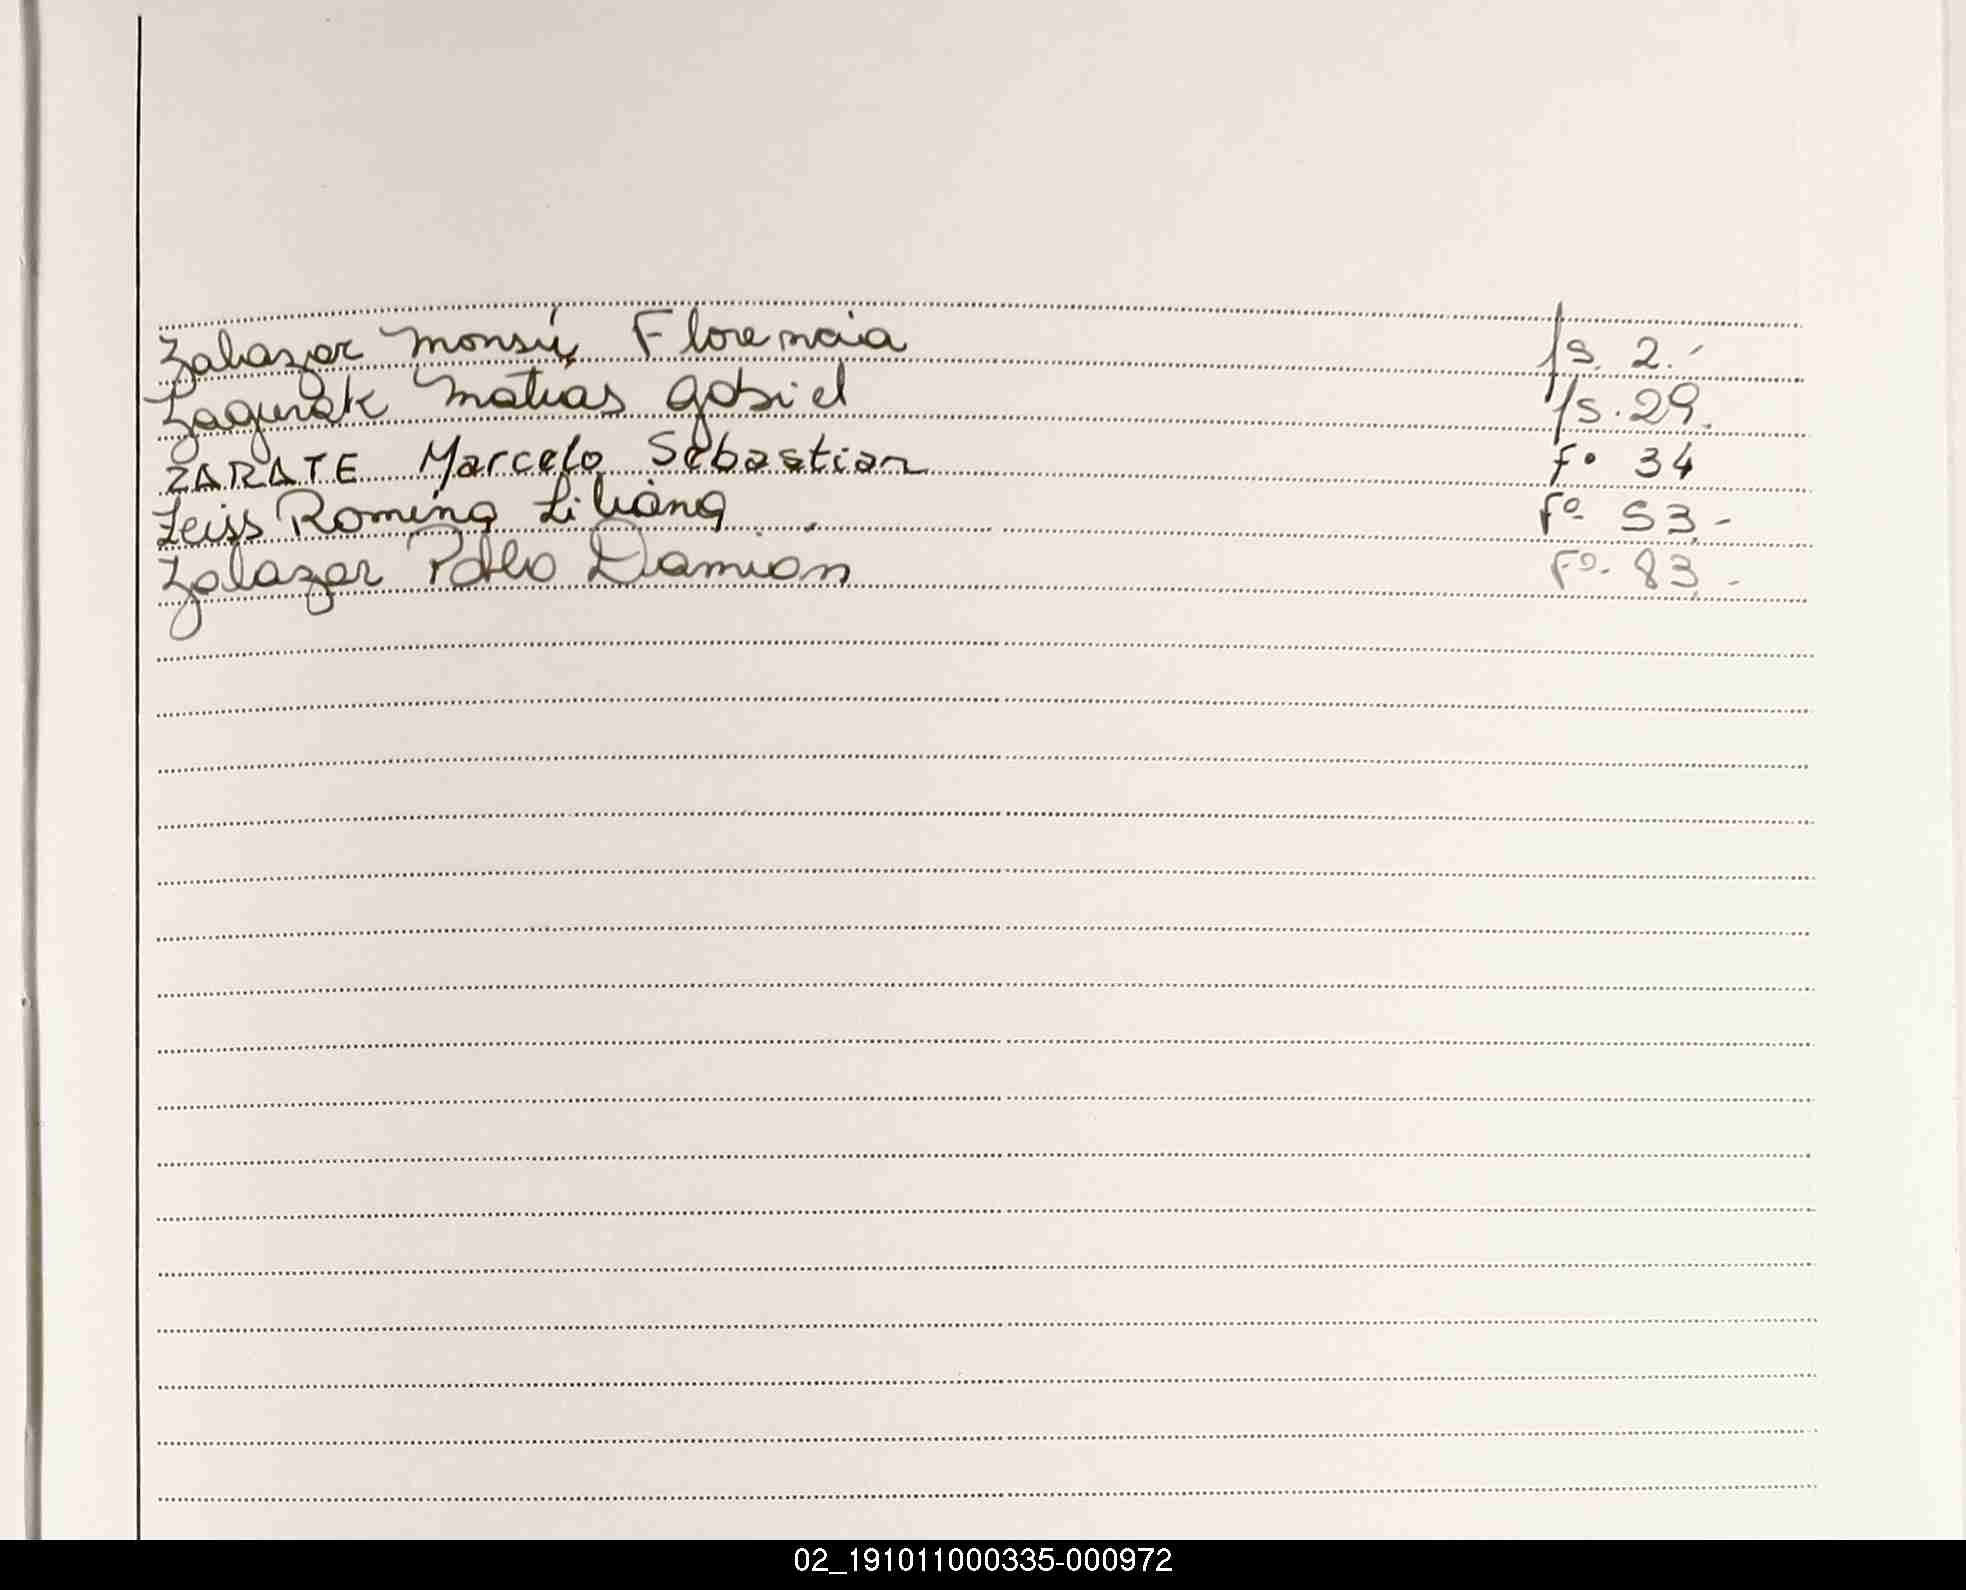 Zalazar Monsú Florencia fs. 2.-
Zagurak Matias Gabriel fs. 29.
ZARATE Marcelo Sebastian Fº 34
Zeiss Romina Liliana Fº 53.-
Zalazar Pablo Damian Fº. 83.-
02_191011000335-000972